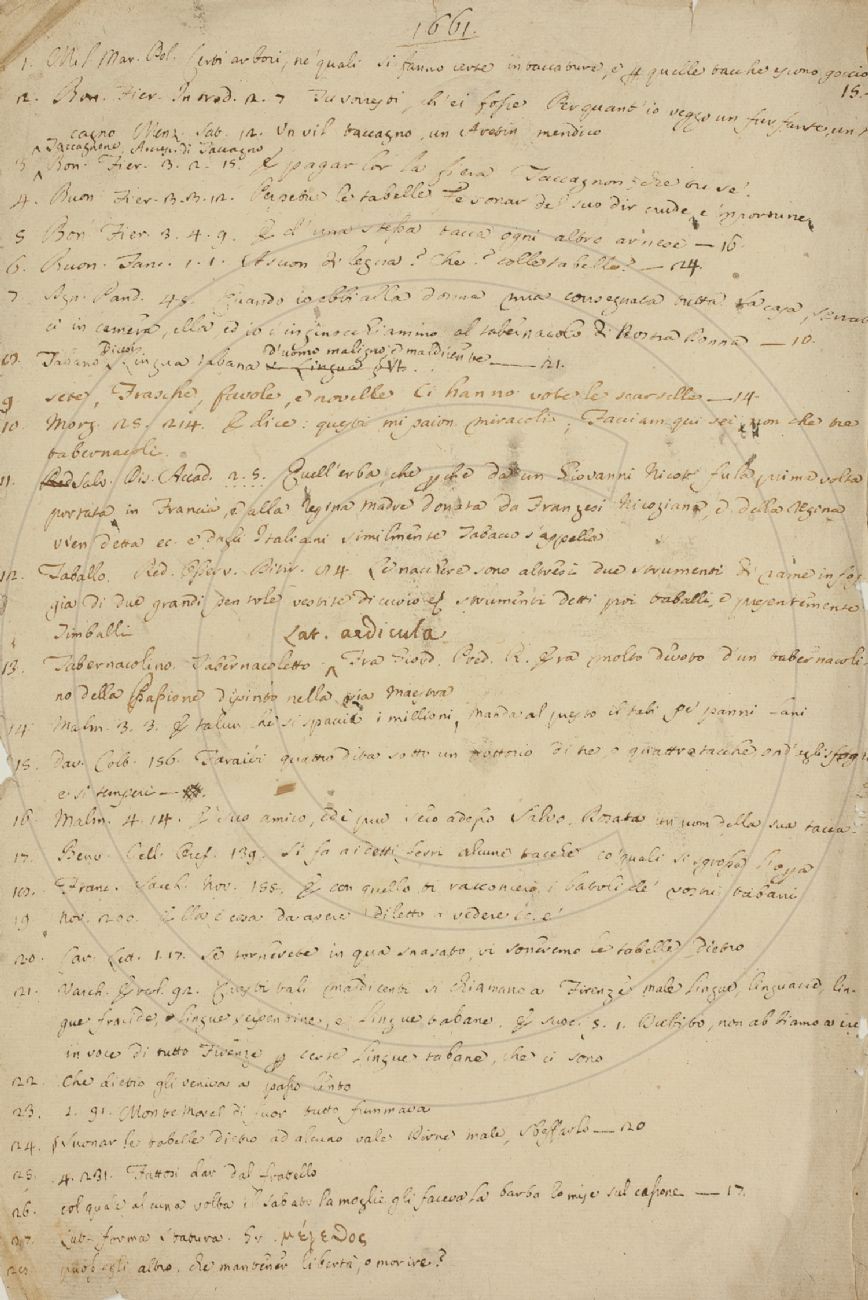 1661.
1. Mil. Mar. Pol. Certi arbori, ne' quali si fanno certe intaccature, e p quelle tacche escono gocciole
15.
2. Bon. Fier. Introd. 2. 7 Tu vorresti, ch' ei fosse Per quant' io veggo un furfante, un t
cagno Menz. Sat. 12. Un vil taccagno, un Aretin mendico
Taccagnone, Accr. di Taccagno
3 Bon. Fier. 3. 2. 15. E pagar lor la fiera Taccagnon; che tu se'.
4. Buon. Fier. 3. 3. 12. Penetra le tabelle Fe sonar del suo dir crude, e importune
5 Bon. Fier. 3. 4. 9. E d' una stessa tacca ogni altro arnese — 16.
6. Buon. Tanc. 1. 1. A suon di legna? Che? colle tabelle? — 24.
7 Agn. Pand. 45. Quando io ebbi alla donna mia consegnata tutta la casa, serrati
ci in camera, ella ed io c' inginocchiammo al tabernacolo di Nostra Donna — 10.
8. Tabano Dicesi Lingua tabana D'uomo maligno, e maldicente — 21.
9 sete, Frasche, favole, e novelle Ci hanno vote le scarselle — 14.
10 Morg. 25. 214. E dice: questi mi paion miracoli; Facciam qui sei, non che tre
tabernacoli.
11. Salv. Dis. Accad. 2. 5. Quell' erba, che p che da un Giovanni Nicot fu la prima volta
portata in Francia, e alla Regina madre donata da Franzesi Nicoziana, e della Regina
vien detta ec. e dagli Italiani similmente Tabacco s'appella
12. Taballo. Red. Osserv. Bitir. 84. Le nacchere sono altresì due strumenti di rame in fog-
gia di due grandi pentole vestite di cuoio ec strumenti detti poi taballi, e presentemente
Timballi Lat. aedicula
13. Tabernacolino. Tabernacoletto. Fra Giord. Pred. R. Era molto divoto d'un tabernacoli-
no della Passione dipinto nella via maestra
14 Malm. 3. 3. E talun che si spaccia i millioni, Manda al presto il tabì pe' panni lani
15. Dav. Colt. 156. Faraivi quattro dita sotto un di tre, o quattro tacche ond' egli sfoghi
e si temperi —
16. Malm. 4. 14. E' suo amico, ed è pur seco adesso Salvo Rosata un uom della sua tacca.
17. Benv. Cell. Oref. 139. Si fa a detti ferri alcune tacche co' quali si sgrossa
18. Franc. Sacch. nov. 155. E con quello ti racconcerò i batoli de' vostri tabani
19. nov. 200. Ella è cosa da avere diletto a vedere ec. e'
20. Car. Lett. 1. 17. Se tornerete in qua snasato, vi soneremo le tabelle dietro
21. Varch. Ercol. 92. Questi tali maldicenti si chiamano a Firenze male lingue, linguacce, lin-
gue fracide, lingue serpentine, e lingue tabane, E Suoc. 5. 1. Dubito, non abbiamo a ire
in voce di tutto Firenze p certe lingue tabane, che ci sono
22. Che dietro gli veniva a passo lento
23. 1. 91. Monte Morel di fuor tutto fiammava
24. Suonar le tabelle dietro ad alcuno vale Dirne male, Sbeffarlo — 20
25. 4. 231. Fattosi dar dal fratello
26. col quale alcuna volta il sabato la moglie gli faceva la barba lo mise sul cassone — 17.
27. Lat. forma statura. Gr. μέγεθος
28. può egli altro, che mantener libertà, o morire?